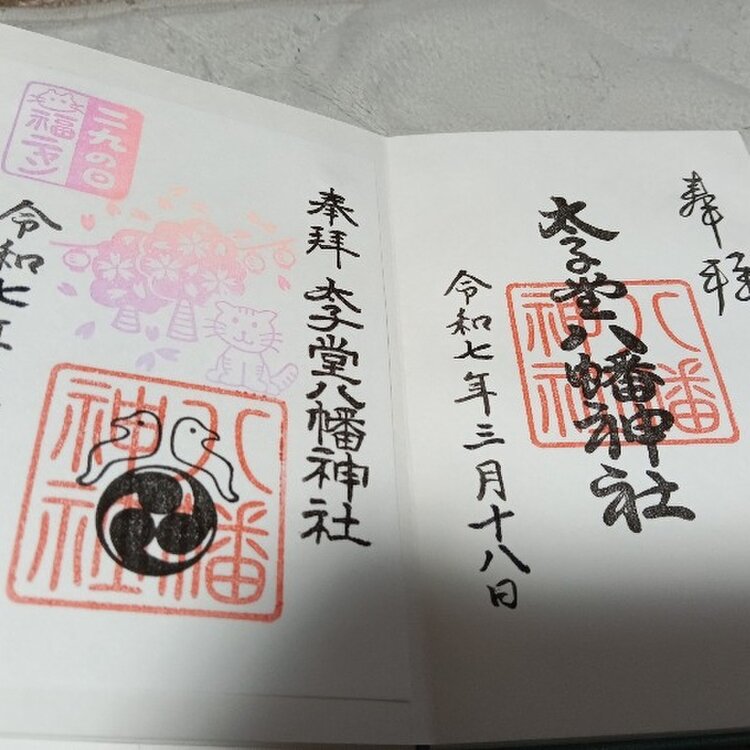 奉拝
太子堂八幡神社
令和七年三月十八日
八幡
神社
奉拝 太子堂八幡神社
八幡
神社
令和七年
福